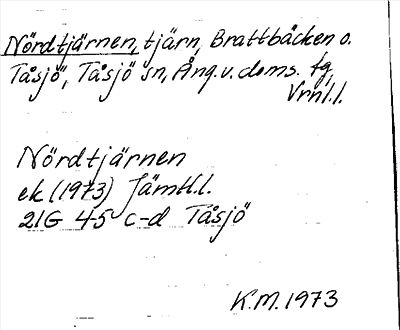 Nördtjärnen, tjärn, Brattbäcken o.
Tåsjö, Tåsjö sn, Ång. v. doms. fg,
Vrnl.l.
Nördtjärnen
ek (1973) Jämtl.l.
21G 4-5 c-d Tåsjö
K.M. 1973